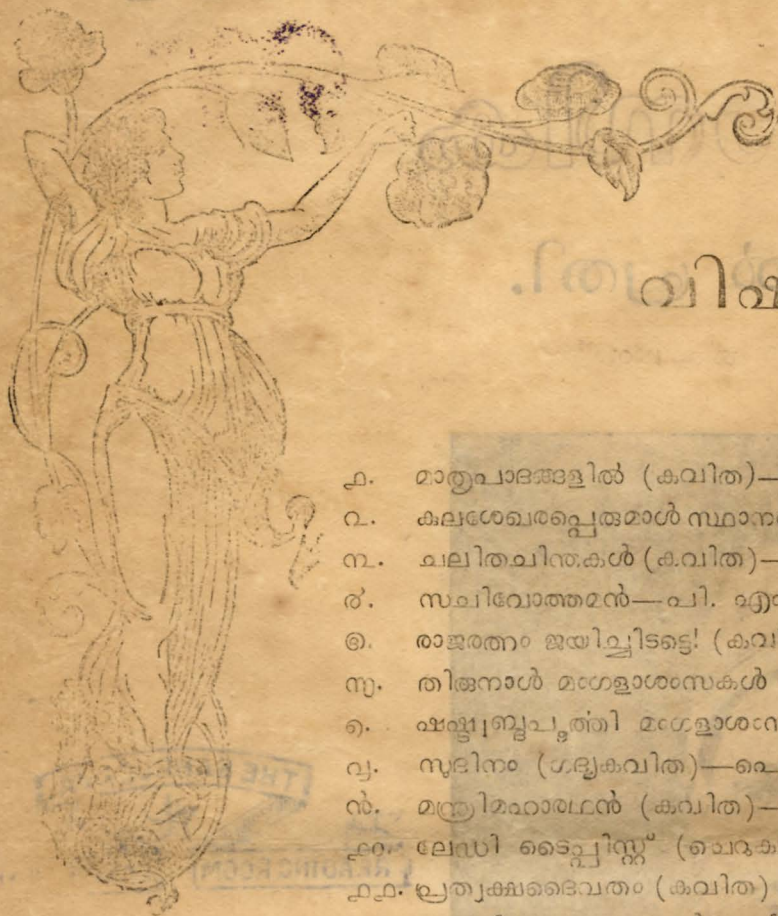 വിഷ
൧. മാതൃപാദങ്ങളിൽ (കവിത)—
൨. കുലശേഖരപ്പെരുമാൾ സ്ഥാന
൩. ചലിതചിന്തകൾ (കവിത)—
൪. സചിവോത്തമൻ—പി. എ
൫. രാജരത്നം ജയിച്ചിടട്ടെ! (കവ
൬. തിരുനാൾ മംഗളാശംസകൾ
൭. ഷഷ്ട്യബ്ദപൂൎത്തി മംഗളാശംസ
൮. സുദിനം (ഗദ്യകവിത)—പെ
൯. മന്ത്രിമഹാരഥൻ (കവിത)—
൧൦. ലേഡി ടൈപ്പിസ്റ്റ് (ചെറുക
൧൧. പ്രത്യക്ഷദൈവതം (കവിത)